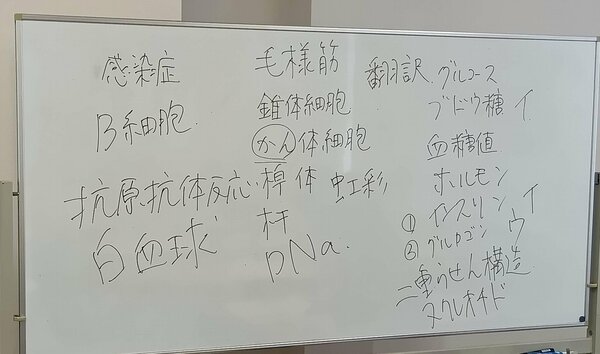 感染症
B細胞
抗原抗体反応
白血球
毛様筋
錐体細胞
かん体細胞
桿体 虹彩
杆
DNa
翻訳 グルコース
ブドウ糖 イ
血糖値
ホルモン
① インスリン イ
② グルカゴン ウ
二重らせん構造
ヌクレオチド